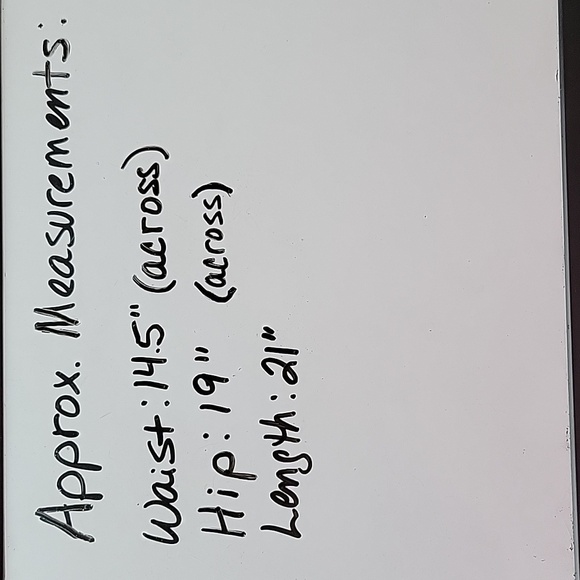 Approx. Measurements:
Waist: 14.5" (across)
Hip: 19" (across)
Length: 21"